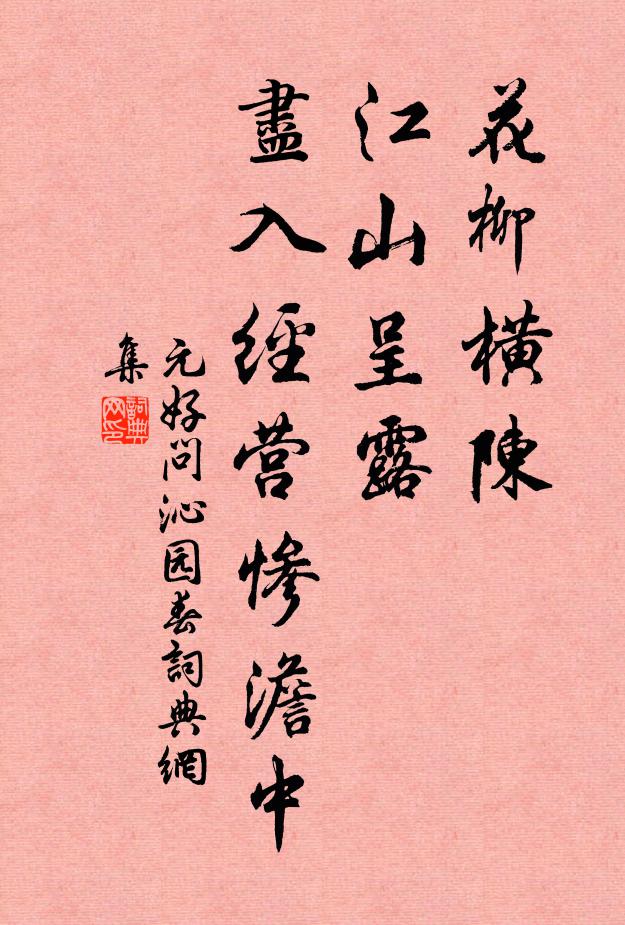 花柳橫陳
江山呈露
盡入經营慘澹中
元好問沁园春詞典網
集
詞典
网印